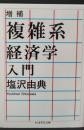 増補
複雑系
経済学
入門
塩沢由典
ちくま学芸文庫